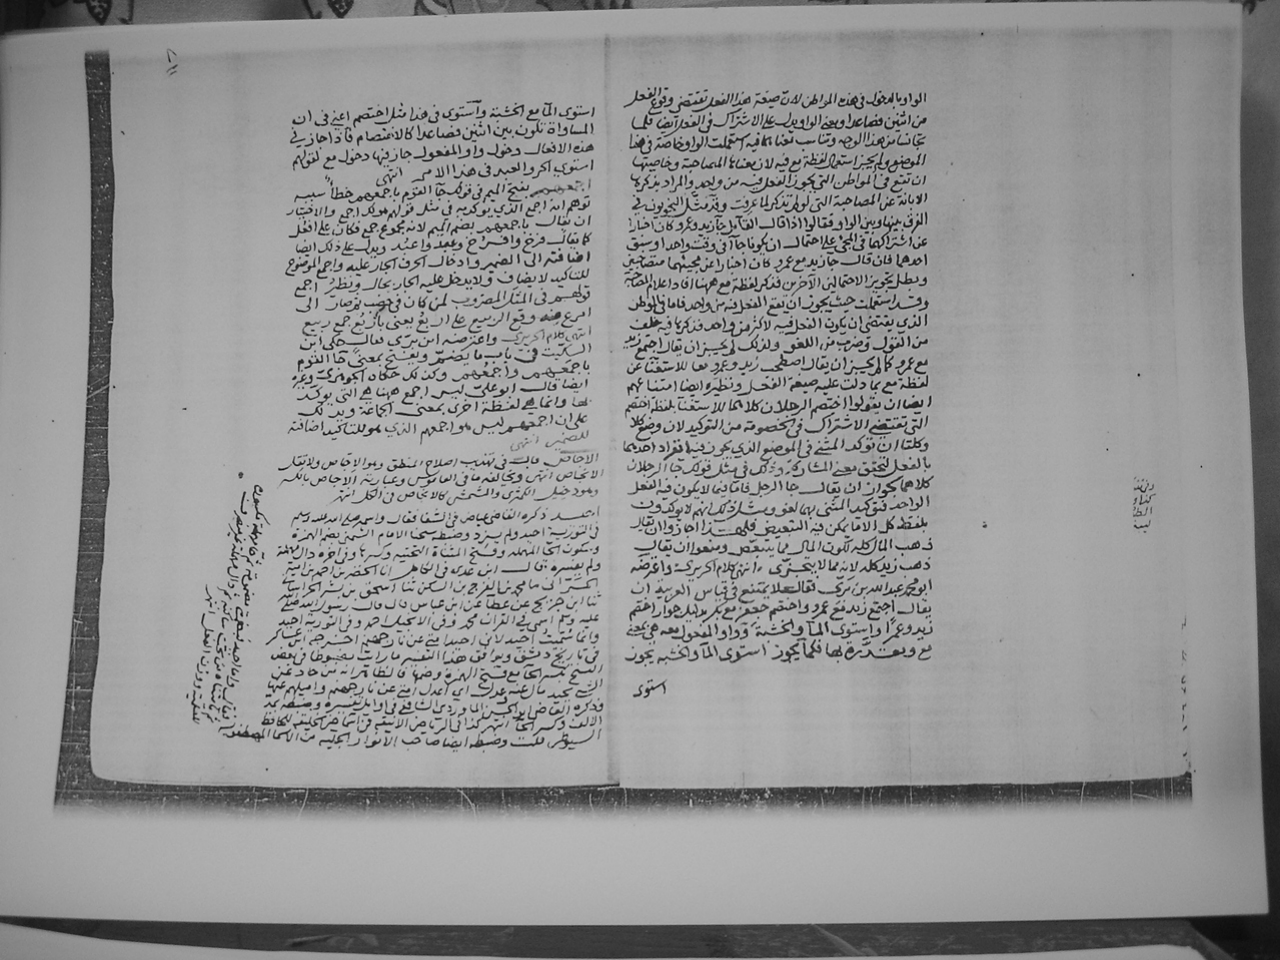 الواو بالدخول في هذه المواطن لان صيغة هذا الفعل تقتضي وقوع الفعل
من اثنين فصاعدا ومعنى الواو يدل على الاشتراك في الفعل ايضا فلما
تجانسا من هذا الوجه وتناسب معناهما فيه استعملت الواو خاصة في هذا
الموضع ولم يجز استعمال لفظة مع فيه لان معناها المصاحبة وخاصيتها
ان تقع في المواطن التي يجوز ان يقع الفعل فيه من واحد والمراد بذكرها
الابانة عن المصاحبة التي لو لم تذكر لما عرفت وقد مثل النحويون في
الفرق بينها وبين الواو فقالوا اذا قال القائل جا زيد وعمرو كان اخبارا
عن اشتراكهما في المجي على احتمال ان يكونا جاآ في وقت واحد او سبق
احدهما فان قال جا زيد مع عمرو كان اخبارا عن مجيئهما متصاحبين
وبطل تجويز الاحتمالين الآخرين فذكر لفظة مع ههنا افاد اعلام المصاحبة
وقد استعملت حيث يجوز ان يقع الفعل فيه من واحد فاما في الموطن
الذي يقتضي ان يكون الفعل فيه لاكثر من واحد فذكرها فيه خلف
من القول وضرب من اللغو ولذلك لم يجز ان يقال اجتمع زيد
مع عمرو كما لم يجز ان يقال اصطحب زيد وعمرو معا للاستغنا عن
لفظة مع بما دلت عليه صيغة الفعل ونظيره ايضا امتناعهم
ايضا ان يقولوا اختصم الرجلان كلاهما للاستغنا بلفظة اختصم
التي تقتضي الاشتراك في الخصومة من التوكيد لان وضع كلا
وكلتا ان تؤكد المثنى في الموضع الذي يجوز فيه انفراد احدهما
بالفعل لتحقق معنى المشاركة وذلك في مثل قولك جا الرجلان
كلاهما لجواز ان يقال جا الرجل فاما فيما لا يكون فيه الفعل
الواحد فتوكيد المثنى بهما لغو ومثل ذلك انهم لا يؤكدون
بلفظ كل الا ما يمكن فيه التبعيض فلهذا اجازوا ان يقال
ذهب المال كله لكون المال مما يتبعض ومنعوا ان يقال
ذهب زيد كله لانه مما لا يتجزى انتهى كلام الحريري واعترضه
ابو محمد عبد الله بن بري فقال لا يمتنع في قياس العربية ان
يقال اجتمع زيد مع عمرو واختصم جعفر مع بكر بدليل جواز اختصم
زيد وعمرا واستوى الما والخشبة وواو المفعول معه هي بمعنى
مع ومقدرة بها فكما يجوز استوى الما والخشبة يجوز
استوى
استوى الما مع الخشبة واستوى في هذا مثل اختصم اعني في ان
المساواة تكون بين اثنين فصاعدا كالاختصام فاذا جاز في
هذه الافعال دخول واو المفعول جاز فيها دخول مع لقولهم
استوى الحر والعبد في هذا الامر انتهى
اجمعهم بفتح الميم في قولك جا القوم باجمعهم خطأ سببه
توهم انه اجمع الذي يؤكد به في مثل قولهم هو لك اجمع والاختيار
ان يقال باجمعهم بضم الميم لانه مجموع جمع فكان على افعل
كما يقال فرخ وافرخ وعبد واعبد ويدل على ذلك ايضا
اضافته الى الضمير وادخال الحرف الجار عليه واجمع الموضوع
للتاكيد لا يضاف ولا يدخل عليه الجار بحال ونظير اجمع
قولهم في المثل المضروب لمن كان في خصب ثم صار الى
امرع منه وقع الربيع على اربع يعني باربع جمع ربيع
انتهى كلام الحريري واعترضه ابن بري فقال حكى ابن
السكيت في باب ما يضم ويفتح بمعنى جا القوم
باجمعهم واجمعهم وكذلك حكاه الجوهري وغيره
ايضا قال ابو علي ليس اجمع ههنا هي التي يؤكد
بها وانما هي لفظة اخرى بمعنى الجماعة ويدلك
على ان اجمعهم ليس هو اجمعهم الذي هو للتاكيد اضافته
للضمير انتهى
الاجاص قال في تهذيب اصلاح المنطق وهو الاجاص ولا تقل
الانجاص انتهى ويخالفه ما في القاموس وعبارته الاجاص بالكسر
وهو دخيل الكمثرى والمشمش كالانجاص في الكل انتهى
احيد ذكره القاضي عياض في الشفا فقال واسمه صلى الله عليه وسلم
في التورية احيد ولم يزد وضبطه شيخنا الامام الشمني بضم الهمزة
وسكون الحا المهملة وفتح المثناة التحتية وكسرها وفي اخره دال مهملة
ولم يفسره قال ابن عدي في الكامل انا الخضر بن احمد بن امية
الحراني نا محمد بن الفرج بن السكن نا اسحق بن بشر الخراساني
ثنا ابن جريج عن عطا عن ابن عباس قال قال رسول الله صلى الله
عليه وسلم اسمي في القران محمد وفي الانجيل احمد وفي التورية احيد
وانما سميت احيد لاني احيد امتي عن نار جهنم اخرجه ابن عساكر
في تاريخ دمشق ويوافق هذا التفسير ما رايته مضبوطا في بعض
النسخ بكسر الحا مع فتح الهمزة وضمها فالظاهر انه من حاد عن
الشي يحيد مال عنه وعدل اي اعدل امتي عن نار جهنم واميلهم عنها
وذكره القاضي ابو الحسن الماوردي الشافعي في اوائل تفسيره وضبطه بمد
الالف وكسر الحا انتهى كذا في الرياض الانيقة في اسما خير الخليقة للحافظ
السيوطي قلت وضبطه ايضا صاحب الانوار الجلية من الاسما المصطفوية